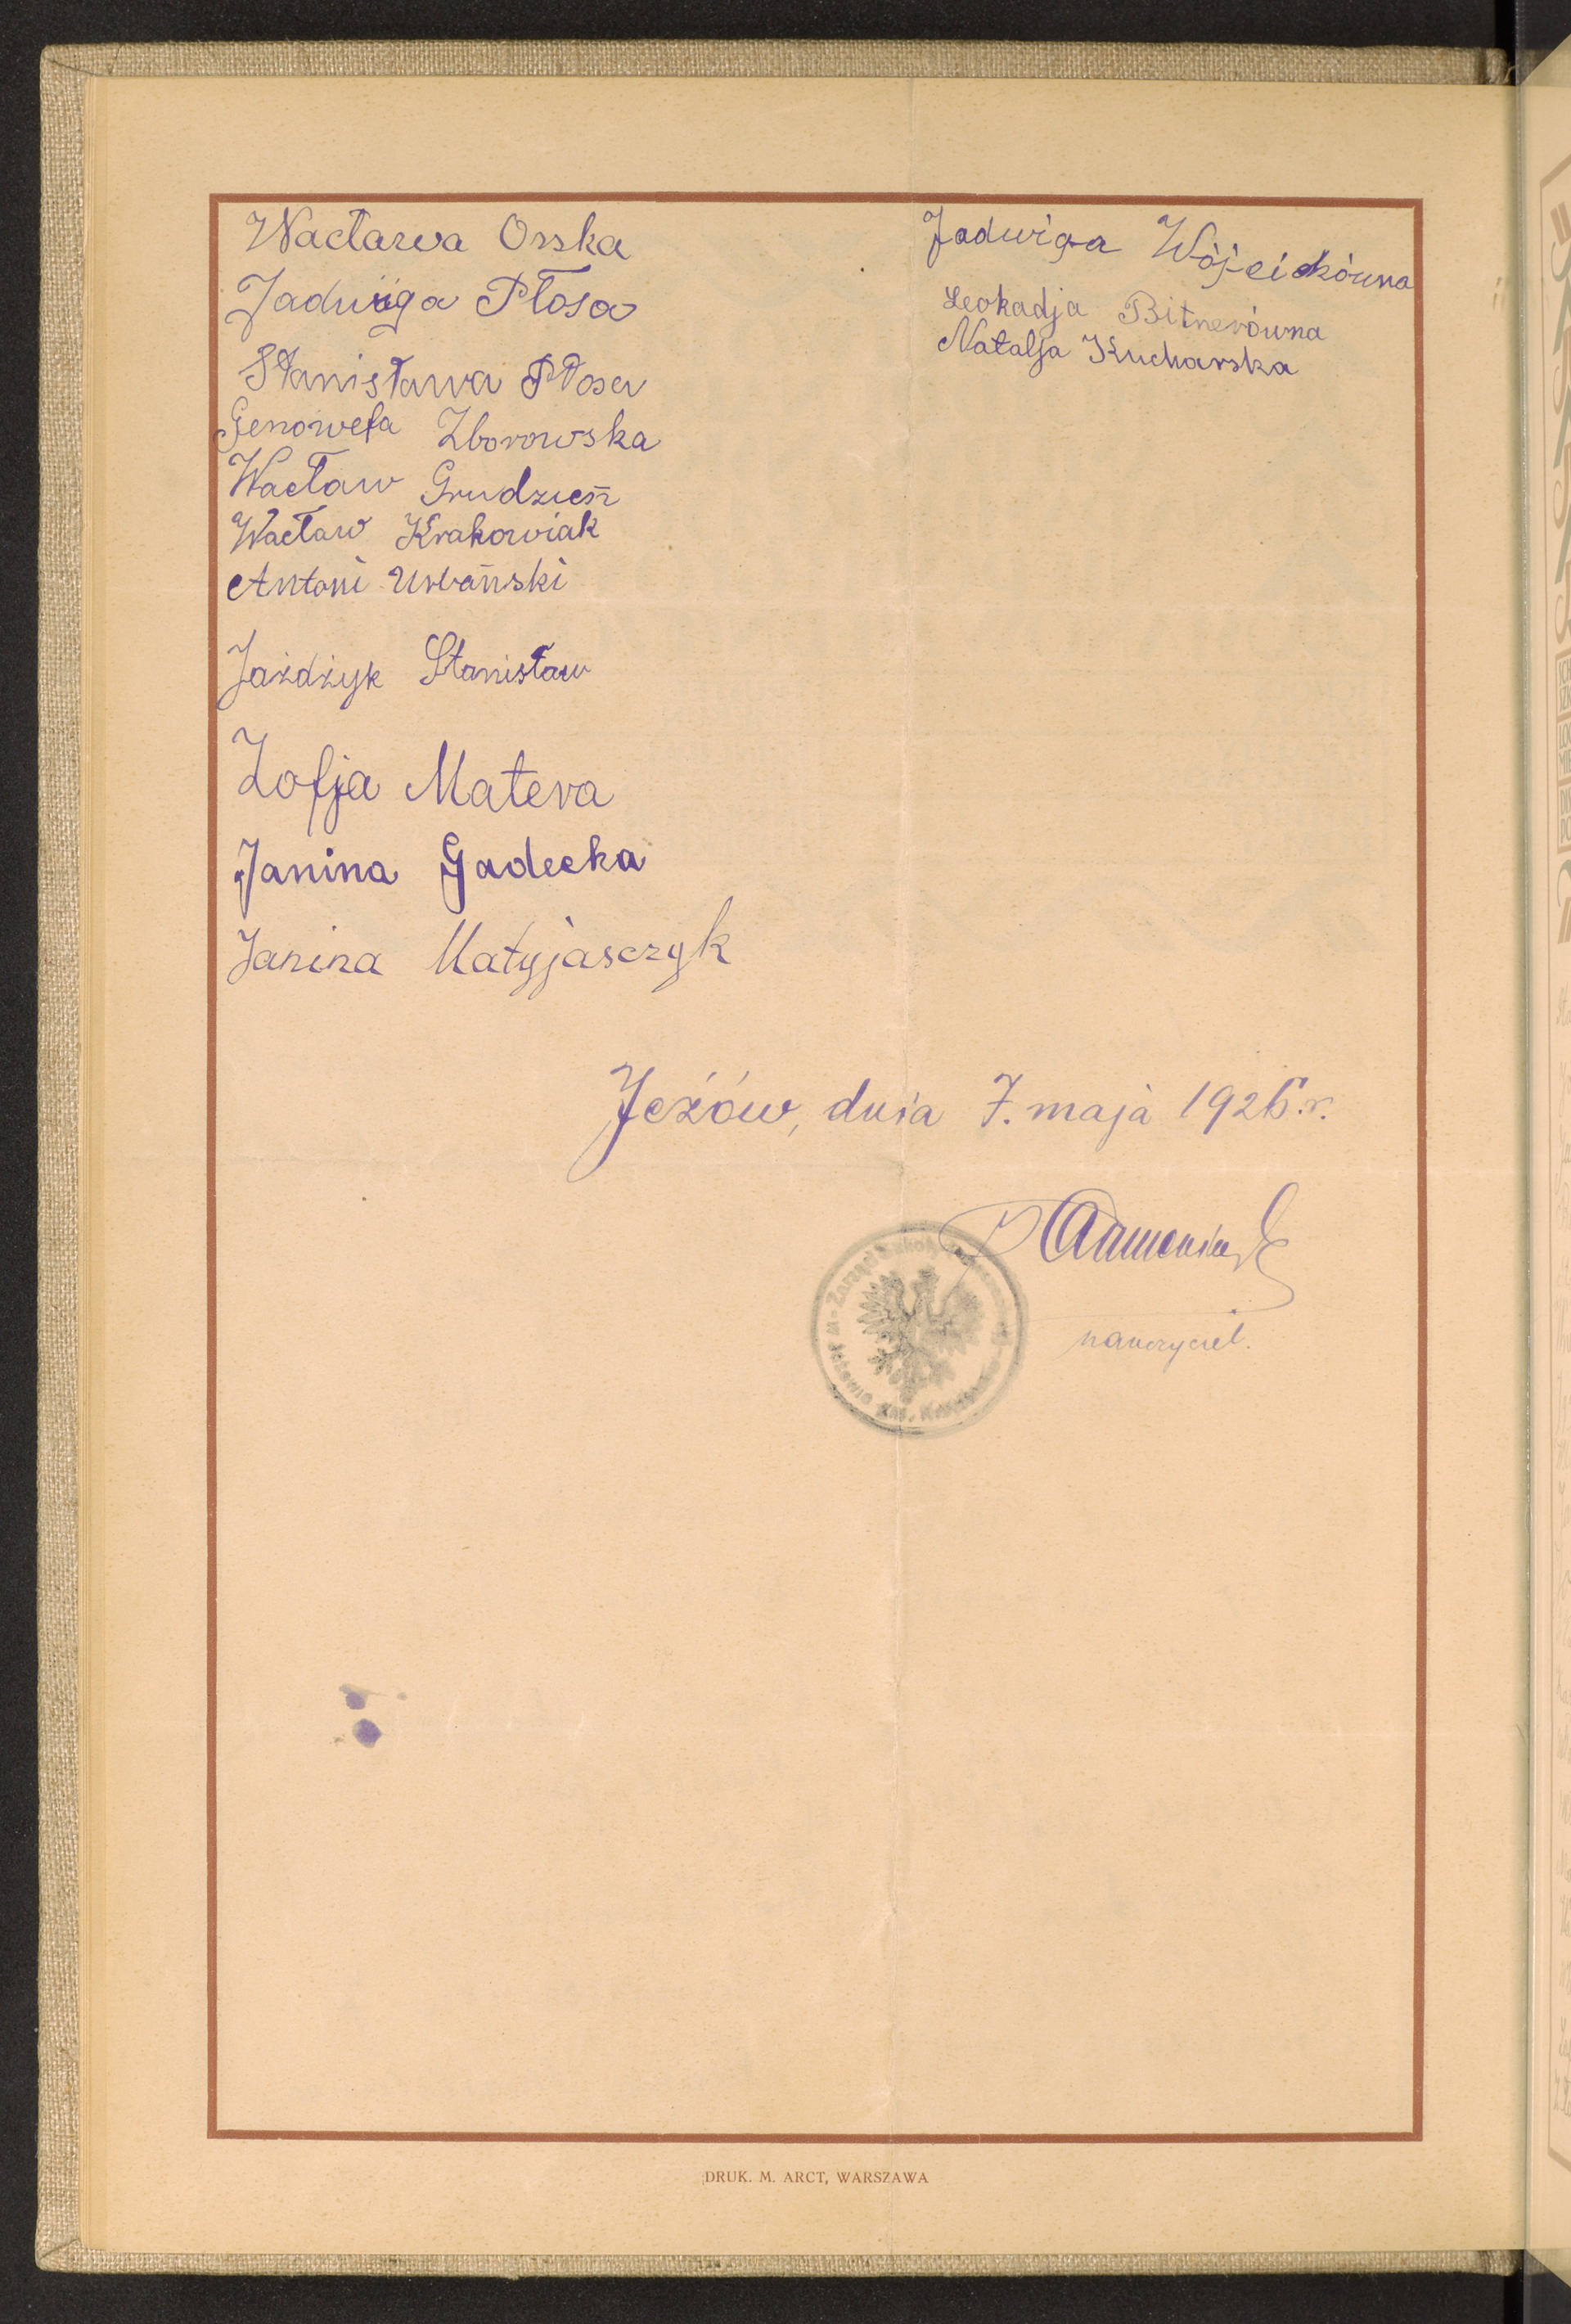 Wacława Osska
Jadwiga Płosa
Stanisława Płosa
Genowefa Zborowska
Wacław Grudzień
Wacław Krakowiak
Antoni Urbański
Jażdżyk Stanisław
Zofja Matera
Janina Gadecka
Janina Matyjasczyk
Jadwiga Wójcickówna
Leokadja Bitnerówna
Natalja Kucharska
Jeżów, dnia 7. maja 1926.r.
nauczyciel.
DRUK. M. ARCT, WARSZAWA